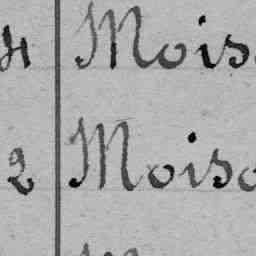 4 Mois
2 Moiso